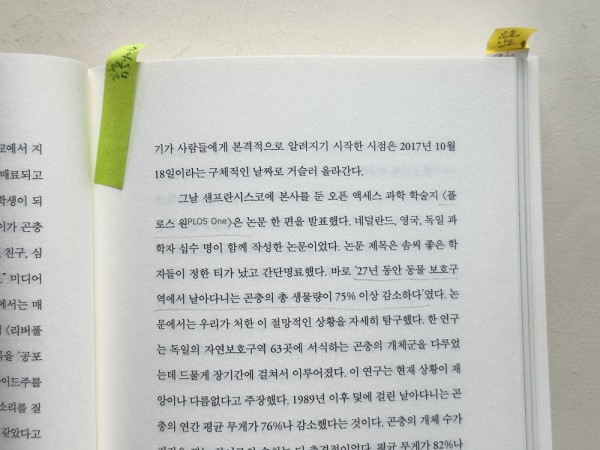 고에서 지
매료되고
학생이 되
이가 곤충
친구, 심
” 미디어
에서는 매
의 〈리버풀
륵을 ‘공포
아이드주를
소리를 질
같았다고
기가 사람들에게 본격적으로 알려지기 시작한 시점은 2017년 10월
18일이라는 구체적인 날짜로 거슬러 올라간다.
그날 샌프란시스코에 본사를 둔 오픈 액세스 과학 학술지 〈플
로스 원PLOS One〉은 논문 한 편을 발표했다. 네덜란드, 영국, 독일 과
학자 십수 명이 함께 작성한 논문이었다. 논문 제목은 솜씨 좋은 학
자들이 정한 티가 났고 간단명료했다. 바로 ‘27년 동안 동물 보호구
역에서 날아다니는 곤충의 총 생물량이 75% 이상 감소하다’였다. 논
문에서는 우리가 처한 이 절망적인 상황을 자세히 탐구했다. 한 연구
는 독일의 자연보호구역 63곳에 서식하는 곤충의 개체군을 다루었
는데 드물게 장기간에 걸쳐서 이루어졌다. 이 연구는 현재 상황이 재
앙이나 다름없다고 주장했다. 1989년 이후 덫에 걸린 날아다니는 곤
충의 연간 평균 무게가 76%나 감소했다는 것이다. 곤충의 개체 수가
평균 무게가 82%나